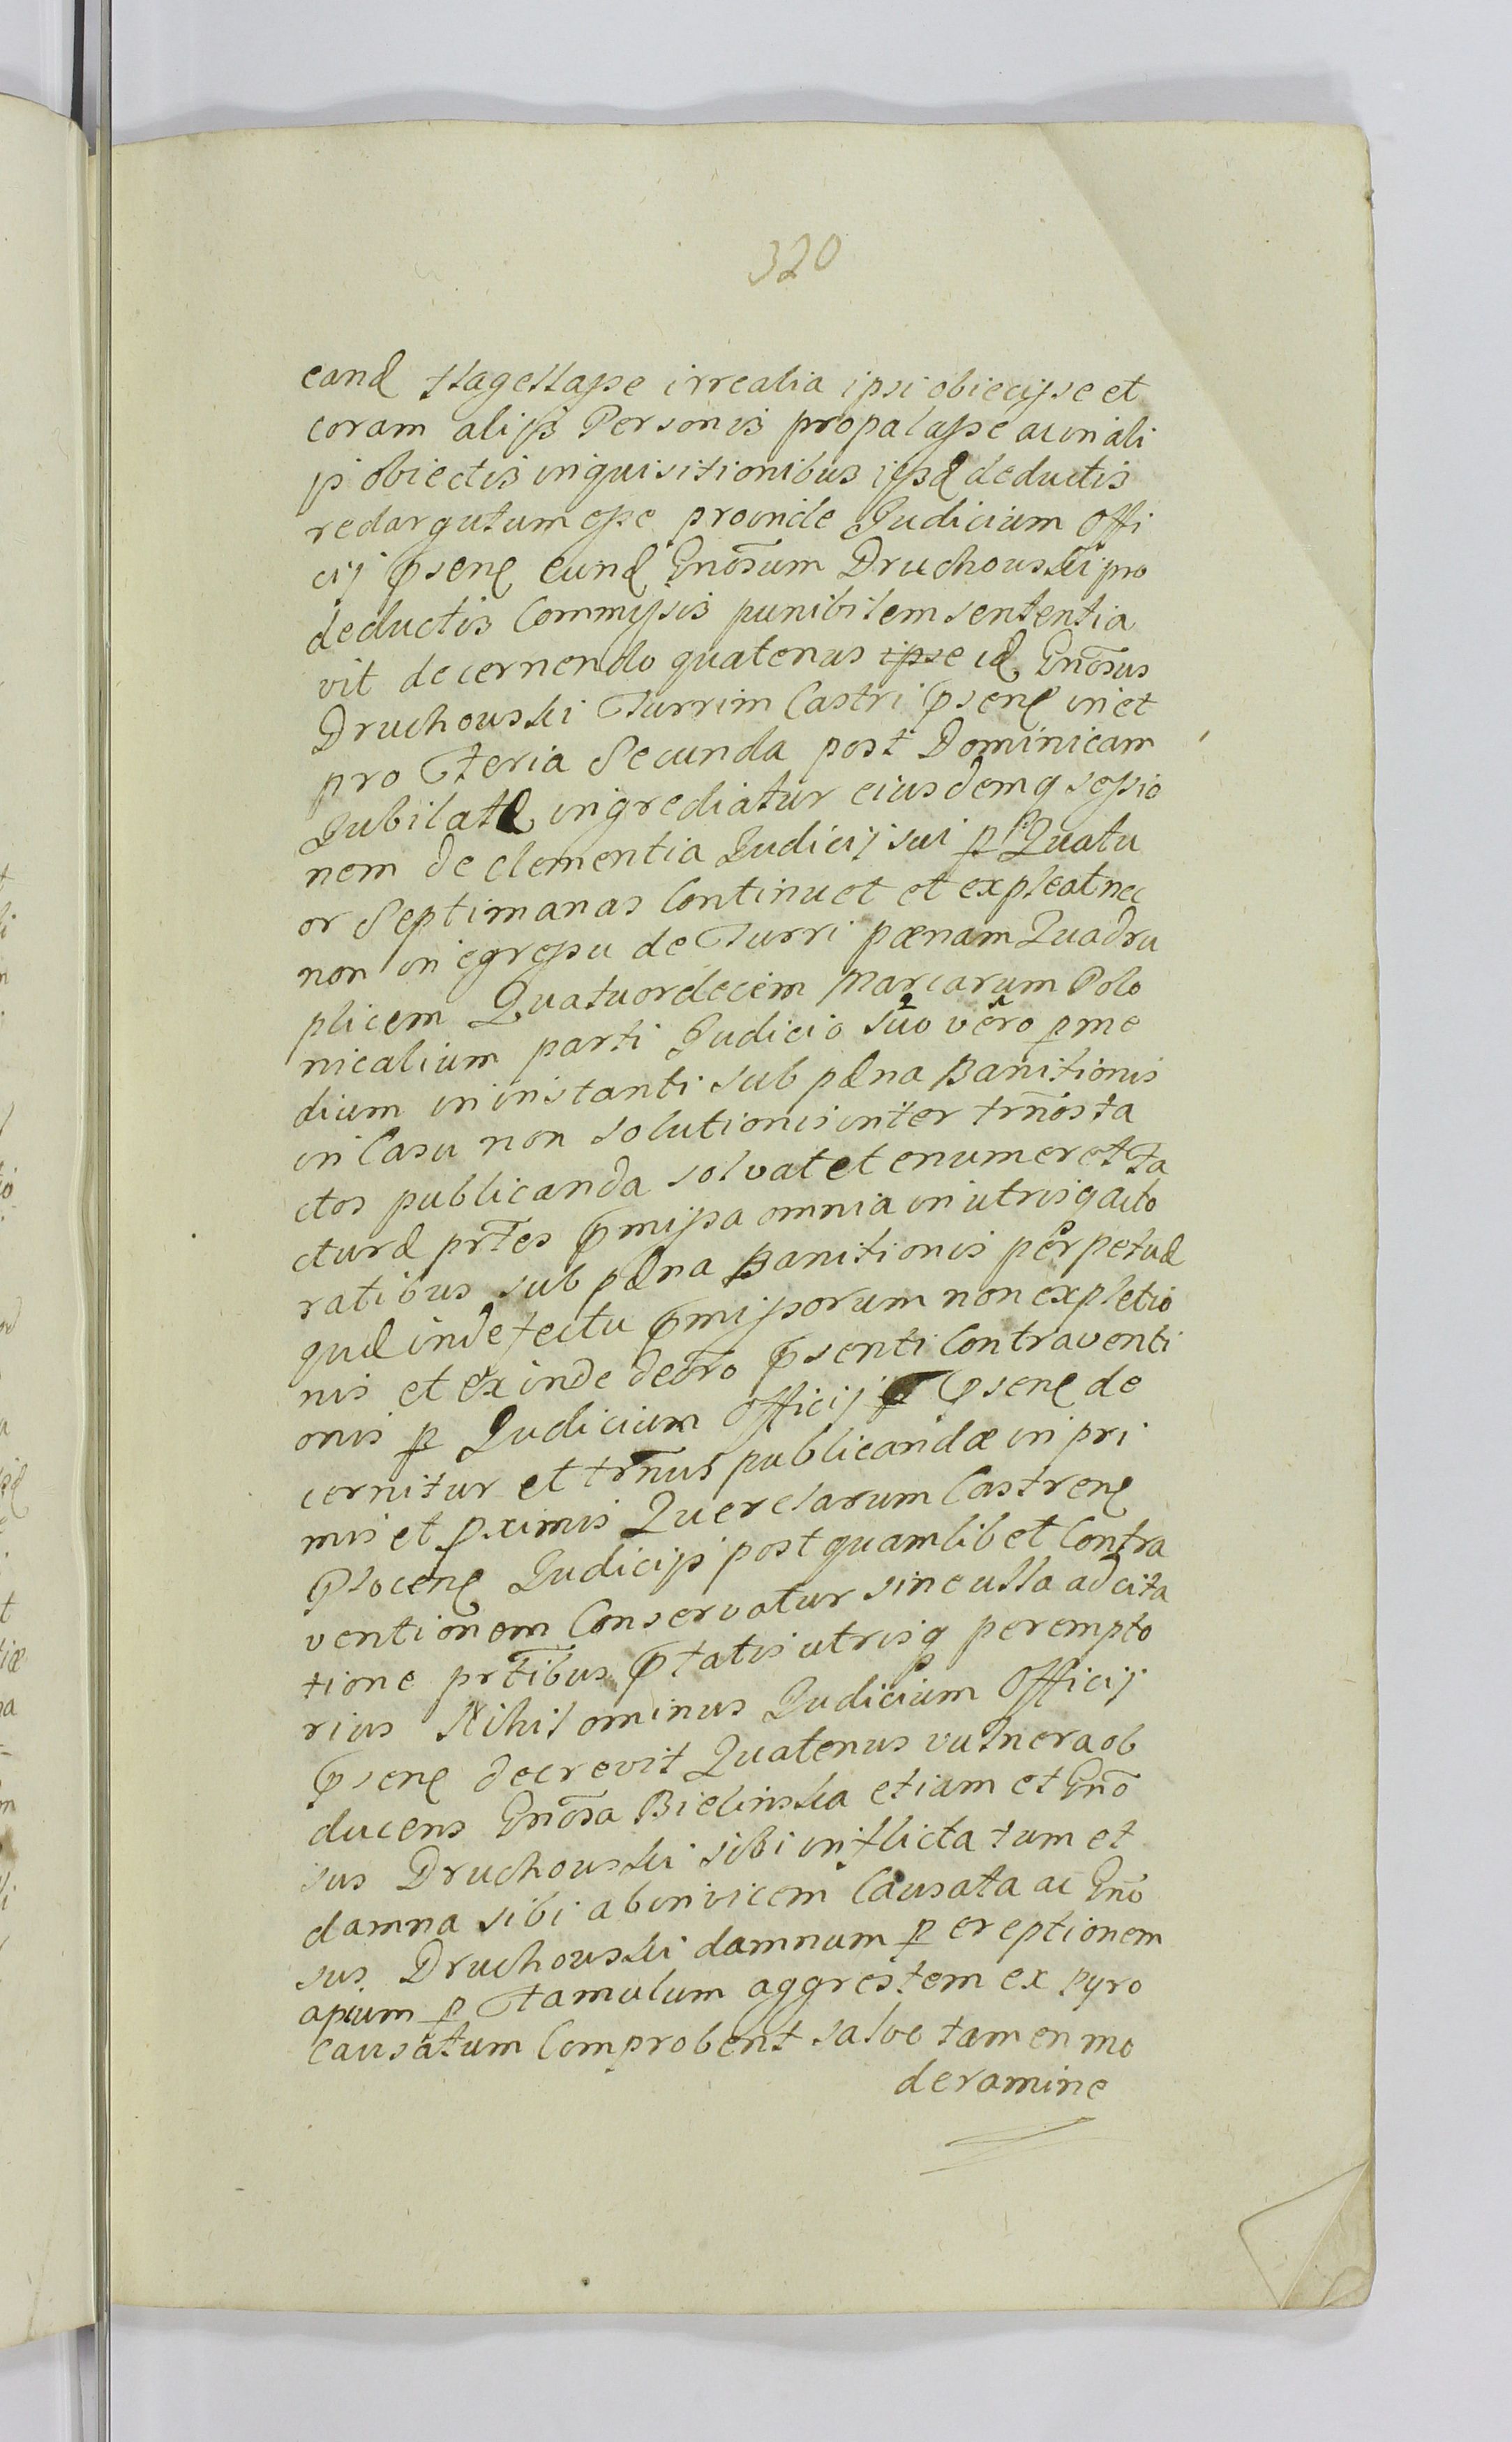 320
eand flagellasse irrealia ipsi obiecisse et
coram alijs Personis propalasse ac in ali
js obiectis inquisitionibus ipsæ deductis
redargutum esse proinde Judicium Offi
cij p̄sens eund Gnōsum Druchowski pro
deductis Commissis punibilem sententia
vit decernendo quatenus ipse id Gnōsus
Druchowski Turrim Castri p̄sens in et
pro Feria Secunda post Dominicam
Jubilate ingrediatur eiusdemq sessio
nem de clementia Judicij sui p Quatu
or Septimanas Continuet et expleat nec
non in egressu de Turri pænam Quadru
plicem Quatuordecim Marcarum Polo
nicalium parti Judicio suo vero p me
dium in instanti sub pæna Banitionis
in Casu non solutionis inter trn̄os ta
ctos publicanda solvat et enumeret Ta
cturæ prt̄es p̄missa omnia in utrisq acto
ratibus sub pæna Banitionis perpetuæ
quæ in defectu p̄missorum non expletio
nis et exinde decr̄o p̄senti Contraventi
onis p Judicium Officij p̄sens de
cernitur et trn̄us publicandæ in pri
mis et pximis Querelarum Castrens
Plocens Judicijs post quamlibet Contra
ventionem Conservatur sine ulla adcita
tione prt̄ibus p̄tatis utrisq perempto
rius Nihilominus Judicium Officij
p̄sens decrevit Quatenus vulnera ob
ducens Gnōsa Bielinska etiam et Gnō
sus Druchowski sibi inflicta tum et
damna sibi ab invicem Causata ac Gnō
sus Druchowski damnum p ereptionem
apium p Famulum aggrestem ex pyro
causatum Comprobent salvo tamen mo
deramine